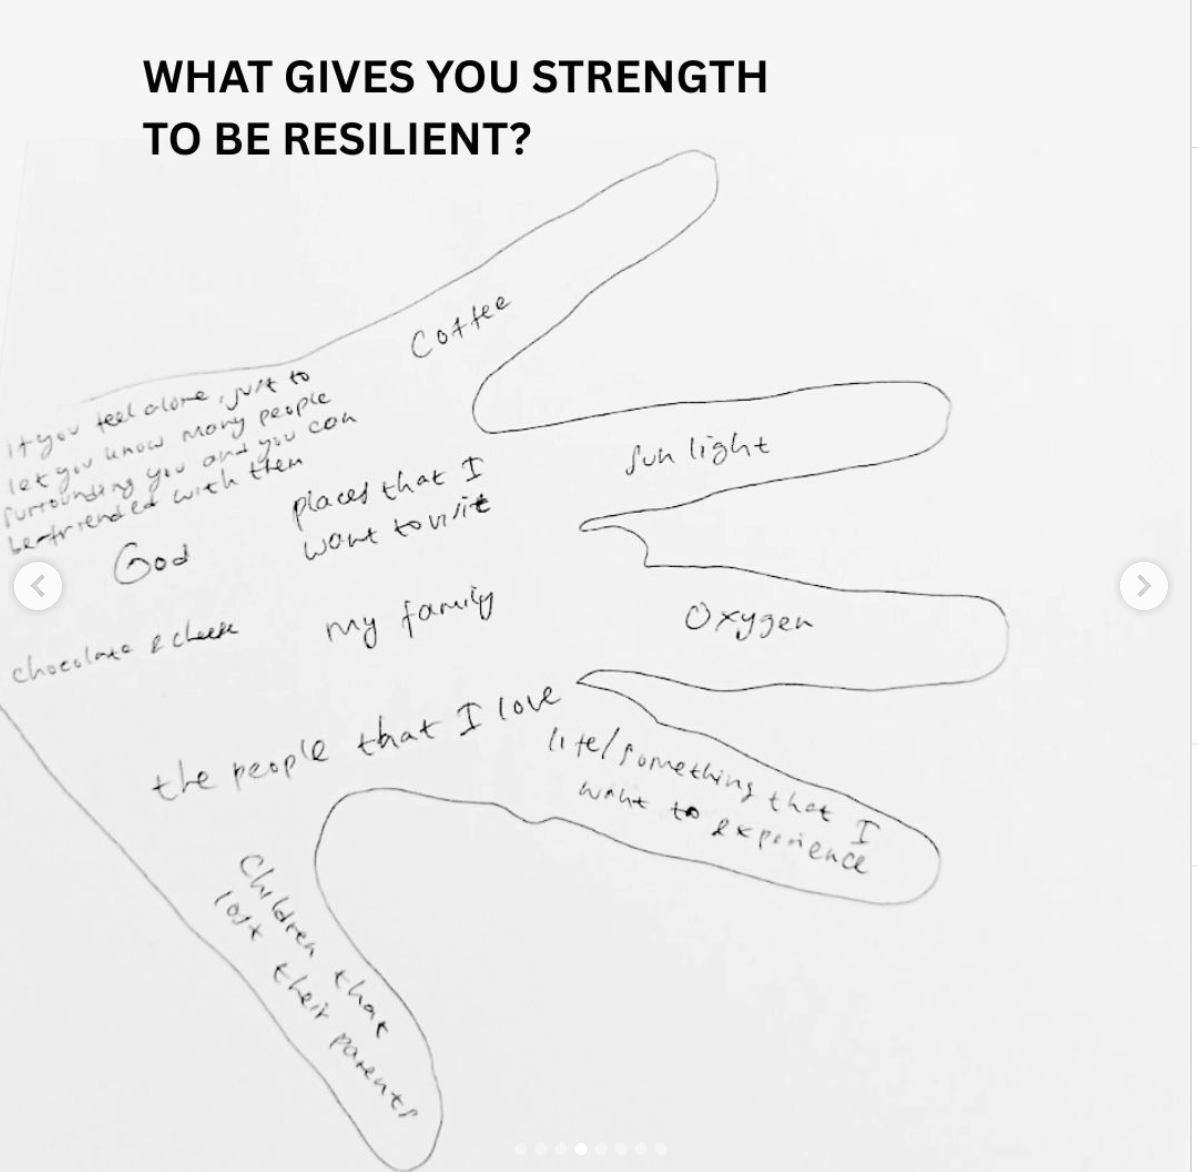 WHAT GIVES YOU STRENGTH
TO BE RESILIENT?
Coffee
If you feel alone, just to
let you know many people
surrounding you and you can
befriended with them
sun light
places that I
want to visit
God
Oxygen
my family
chocolate & cheese
the people that I love
life/something that I
want to experience
Children that
lost their parents